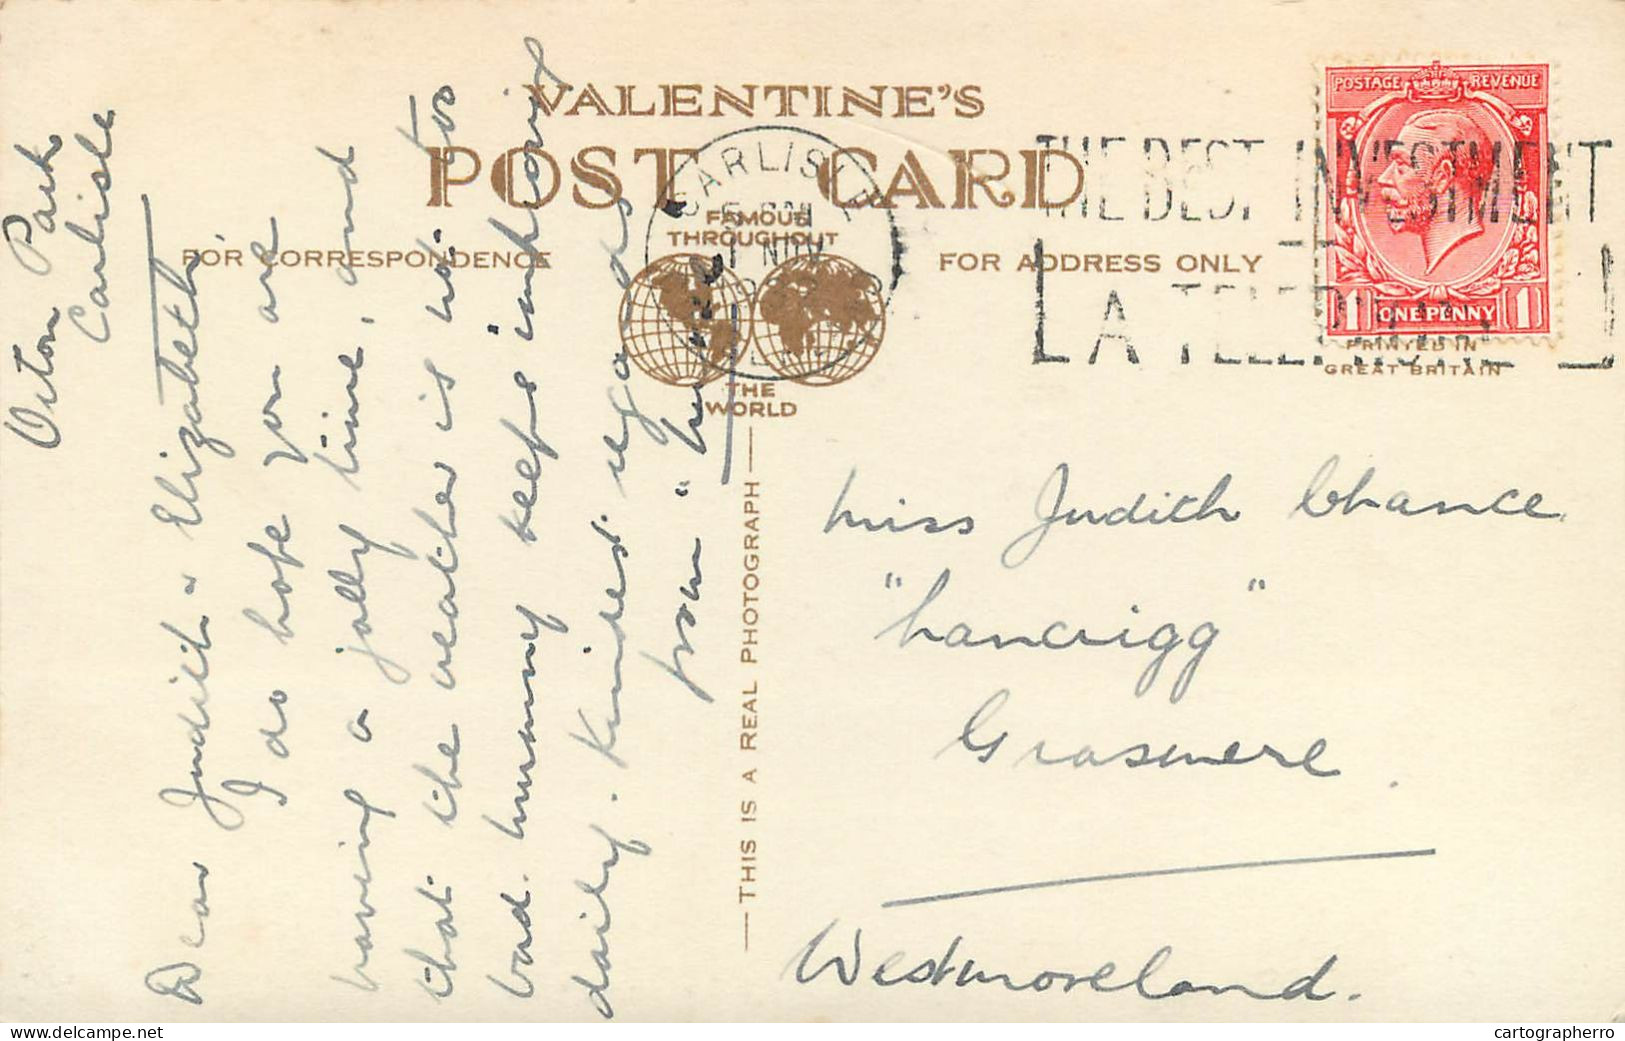 VALENTINE'S
POST CARD
FAMOUS
THROUGHOUT
THE
WORLD
FOR CORRESPONDENCE
FOR ADDRESS ONLY
THIS IS A REAL PHOTOGRAPH
CARLISLE
1 NOV
THE BEST INVESTMENT
A TELEPHONE
POSTAGE REVENUE
1 ONE PENNY 1
PRINTED IN
GREAT BRITAIN
Orton Park
Carlisle
Dear Judith & Elizabeth
I do hope you are
having a jolly time, and
that the weather is not too
bad. Mummy keeps improving
daily. Kindest regards
from "
Miss Judith Chance.
"Lancrigg"
Grasmere.
Westmoreland.
cartographerro